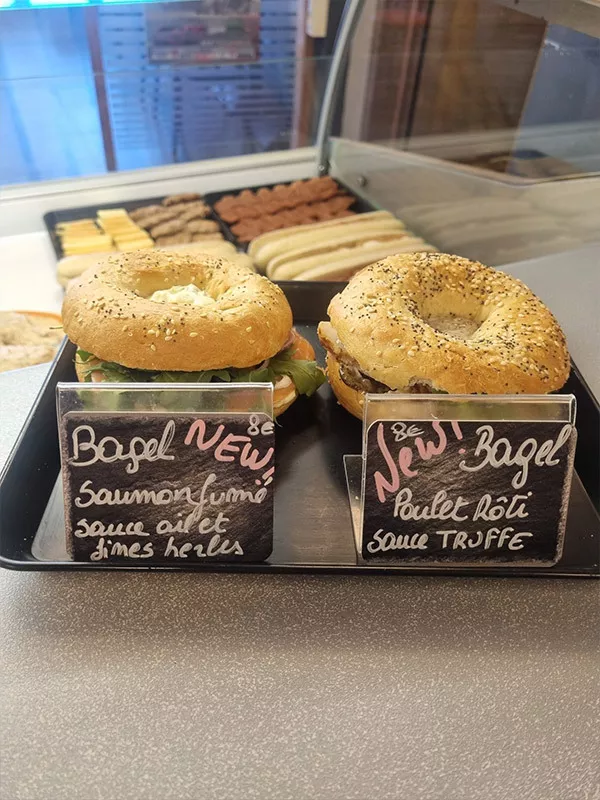 Bagel NEW! 8€
Saumon fumé
sauce ail et
fines herbes
8€
New! Bagel
Poulet Rôti
sauce TRUFFE